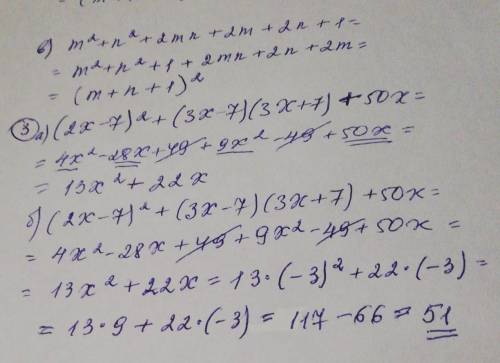 в) m²+n²+2mn+2m+2n+1=
= m²+n²+1+2mn+2n+2m=
= (m+n+1)²
③ а) (2x-7)²+(3x-7)(3x+7)+50x=
= 4x²-28x+49+9x²-49+50x=
= 13x²+22x
б) (2x-7)²+(3x-7)(3x+7)+50x=
= 4x²-28x+49+9x²-49+50x=
= 13x²+22x=13·(-3)²+22·(-3)=
= 13·9+22·(-3)=117-66=51